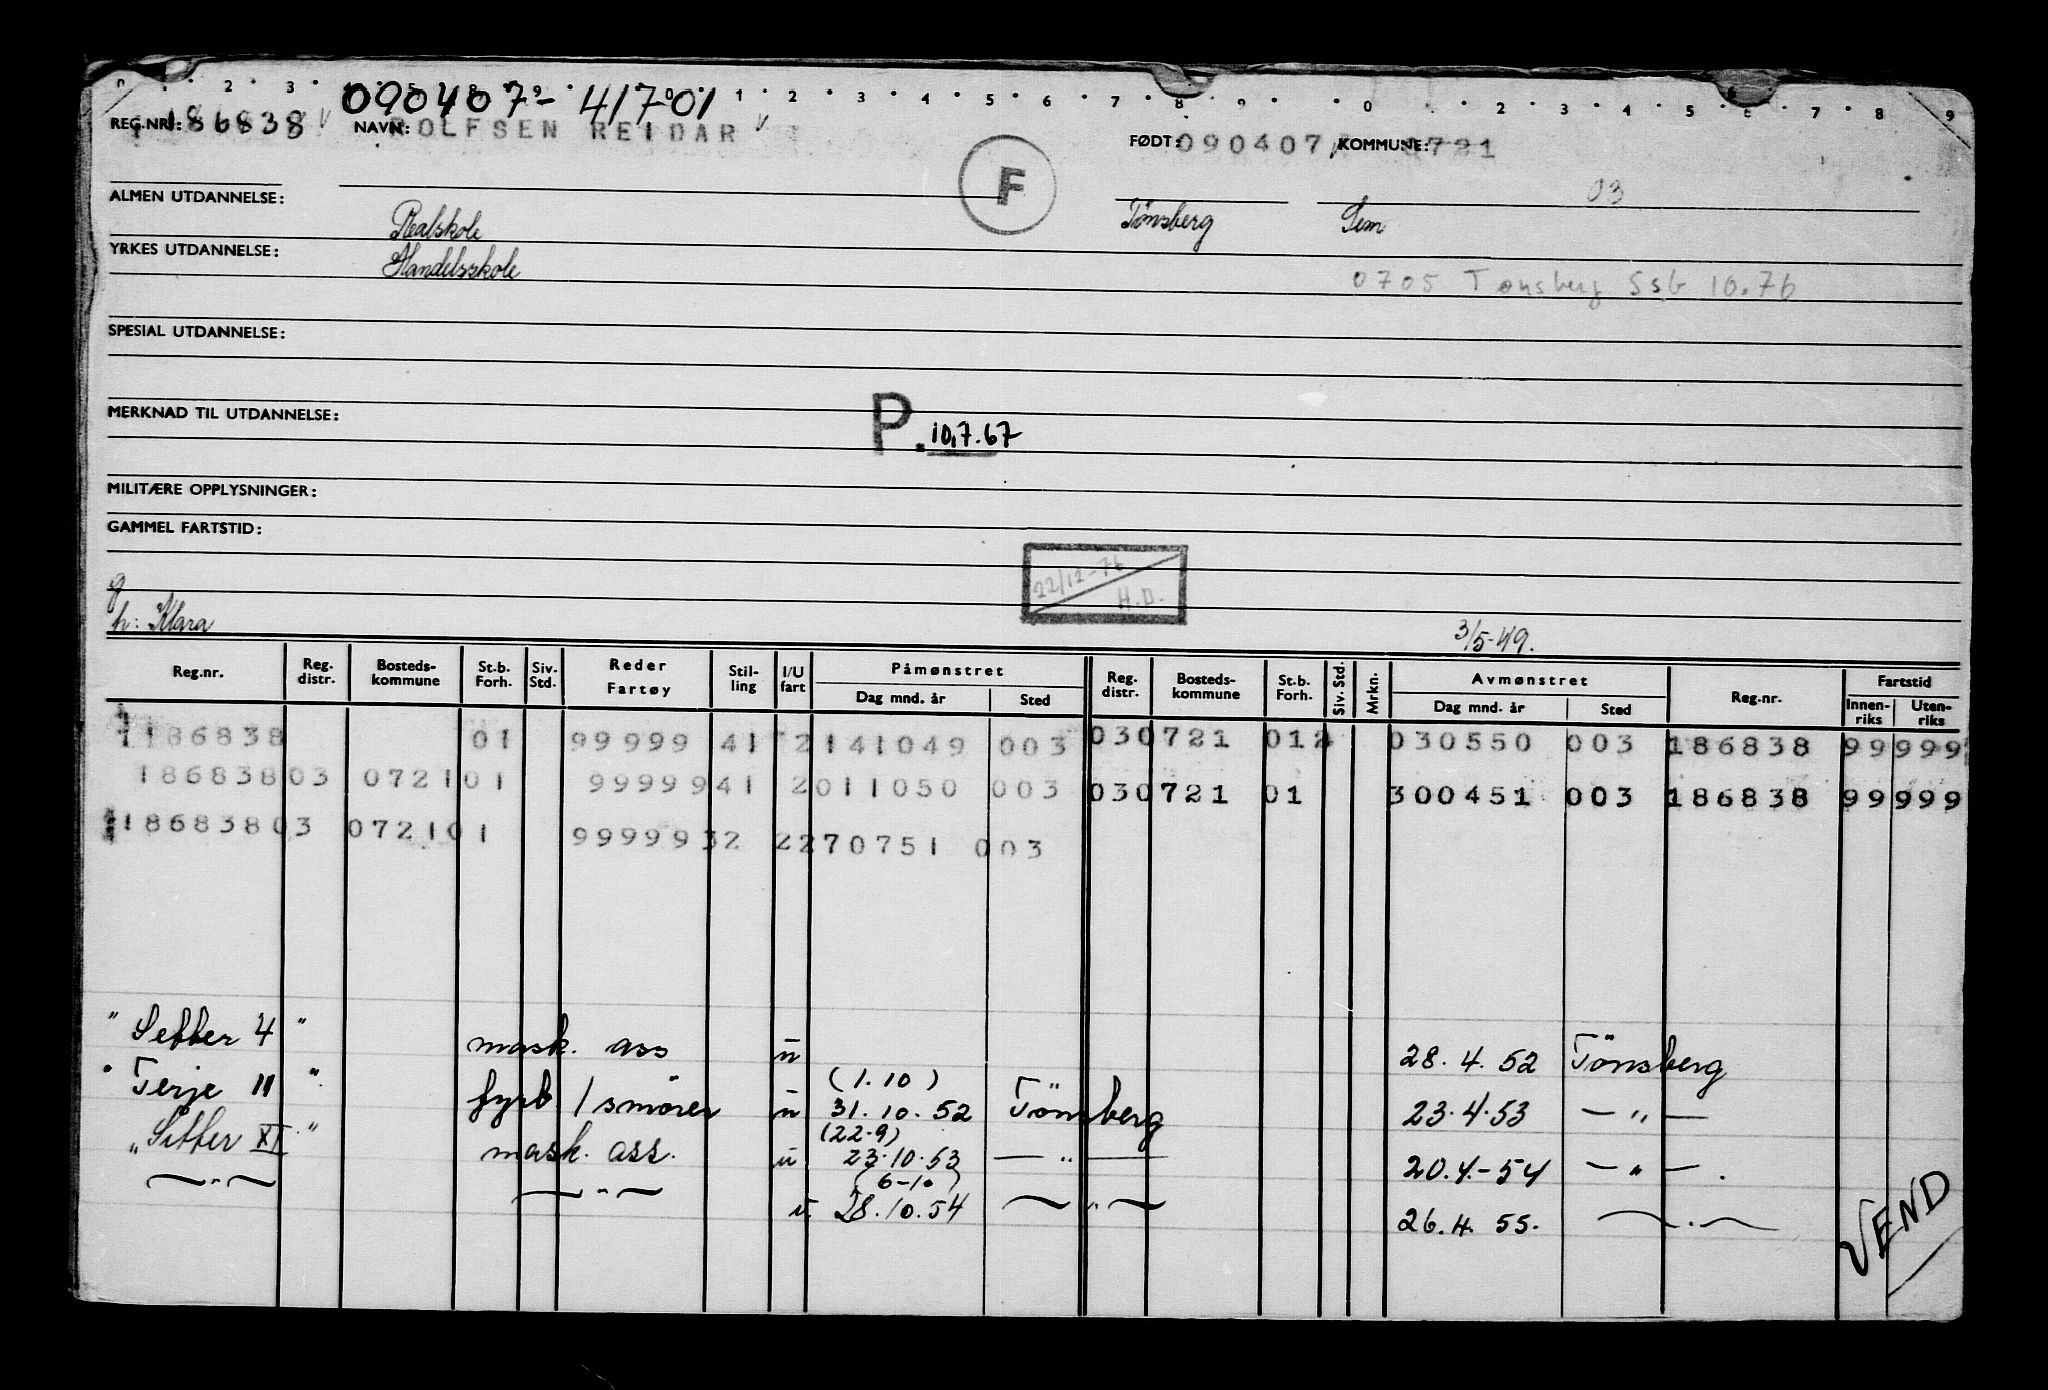 0 1 2 3 1 2 3 4 5 6 7 8 9 0 1 2 3 4 5 6 7 8 9
090407- 41701
REG.NR.: 186838 NAVN: ROLFSEN REIDAR FØDT: 090407 KOMMUNE: 0721
F 03
ALMEN UTDANNELSE: Realskole Tönsberg Sem
YRKES UTDANNELSE: Handelsskole
0705 Tønsberg Ssb 10.76
SPESIAL UTDANNELSE:
MERKNAD TIL UTDANNELSE:
P. 10.7.67
MILITÆRE OPPLYSNINGER:
GAMMEL FARTSTID:
22/12-76
H.D.
g
h: Klara 3/5-49.
Reg.nr. Reg. distr. Bosteds-kommune St.b. Forh. Siv. Std. Reder Fartøy Stil-ling I/U fart Påmønstret Dag mnd. år Sted Reg. distr. Bosteds-kommune St.b. Forh. Siv. Std. Mrkn. Avmønstret Dag mnd. år Sted Reg.nr. Fartstid Innen-riks Uten-riks
186838 01 99999 41 2 141049 003 030721 012 030550 003 186838 99 999
186838 03 0721 01 99999 41 2 011050 003 030721 01 300451 003 186838 99 999
186838 03 0721 01 99999 32 2 270751 003
" Setter 4 " mask. ass u 28.4.52 Tönsberg
(1.10)
" Terje 11 " fyrb / smörer u 31.10.52 Tönsberg 23.4.53 — " —
(22.9)
" Setter XI " mask. ass. u 23.10.53 — " — 20.4-54 — " — .
(6-10)
— " — — " — u. 28.10.54 — " — 26.4.55. — " —
VEND